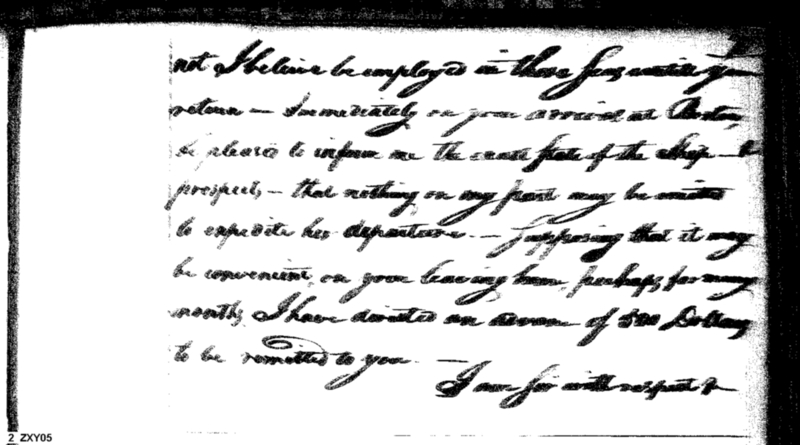 not I believe be employed in those Seas untill your
return — Immediately on your arrival at Boston,
be pleased to inform me the exact state of the Ship — &
prospects, — that nothing on my part may be omitted
to expedite her departure. — Supposing that it may
be convenient, on your leaving home, perhaps, for many
months, I have directed an advance of 500 Dollars,
to be remitted to you. —
I am Sir with respect &
2 ZXY05